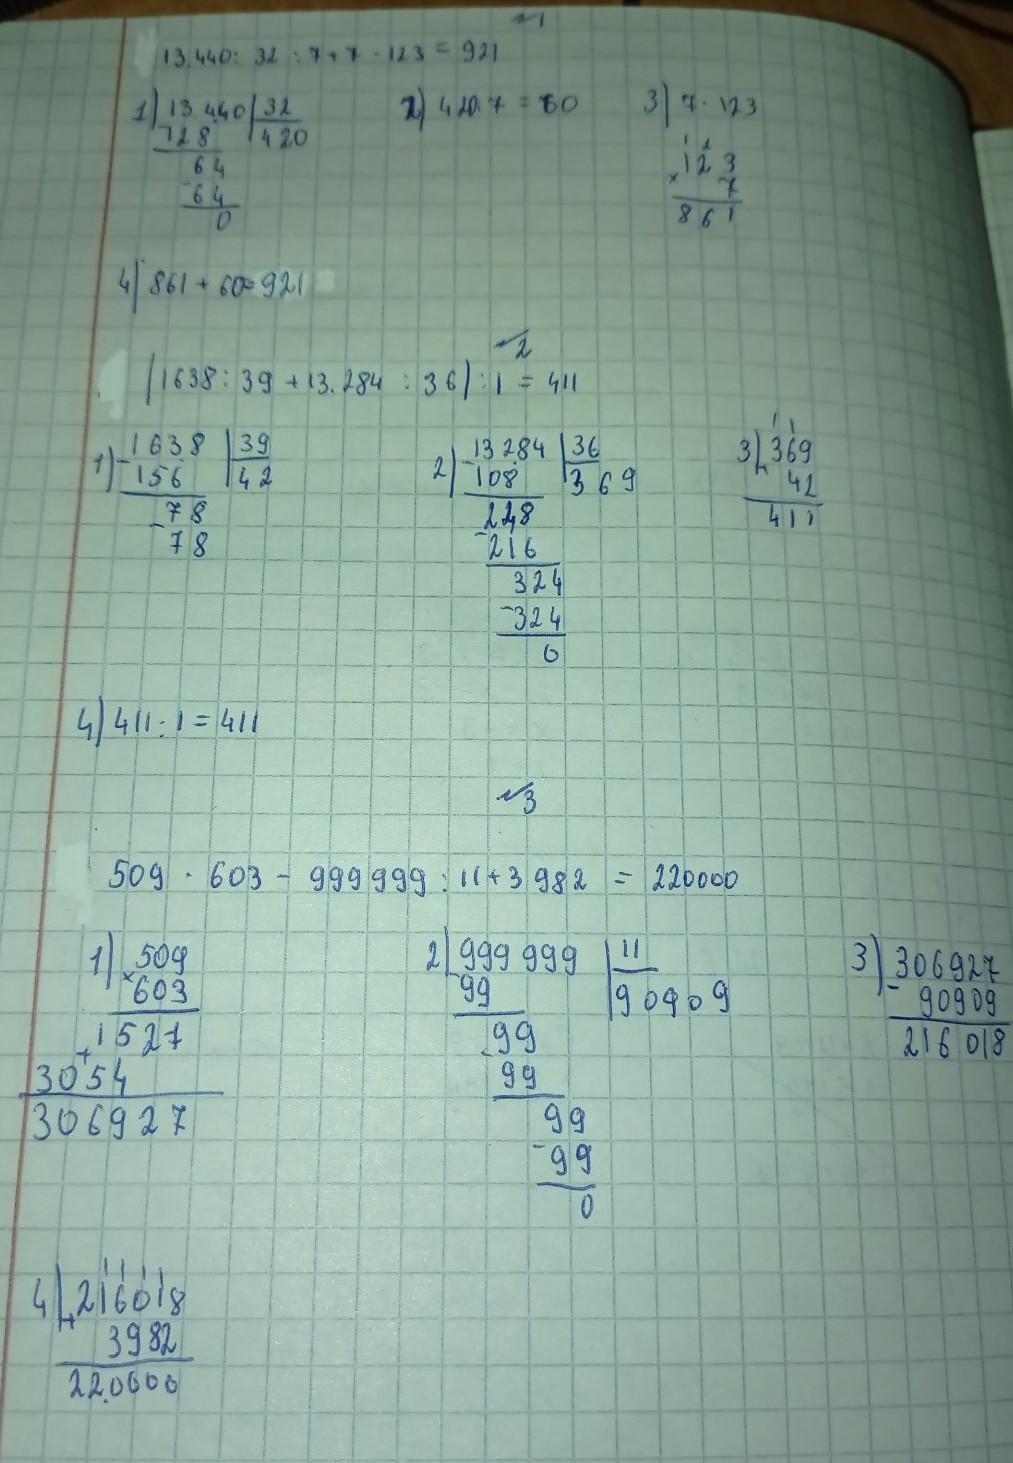 №1
13.440 : 32 : 7 + 7 · 123 = 921
1) 13 440 32 2) 420:7 = 60 3) 7 · 123
- 128 420
64
- 64
0
1 2
123
× 7
861
4) 861 + 60 = 921
№2
(1638 : 39 + 13.284 : 36) : 1 = 411
1) - 1638 39 2) - 13 284 36 3) + 369
156 42
78
- 78
108 369
228
- 216
324
- 324
0
1 1
42
411
4) 411 : 1 = 411
№3
509 · 603 - 999 999 : 11 + 3 982 = 220000
1) × 509 2) 999 999 11 3) - 306927
603
1527
+
3054
306927
- 99 90909
99
99
99
- 99
0
90909
216 018
4) + 216018
1 1 1 1
3982
220000